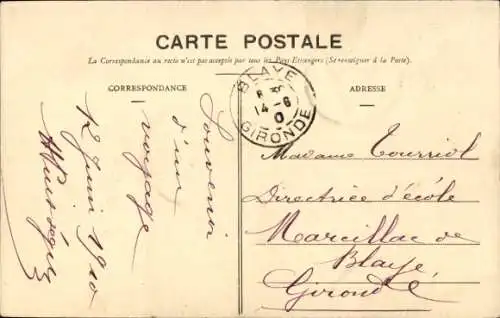 CARTE POSTALE
La Correspondance au recto n'est pas acceptée par tous les Pays Étrangers (Se renseigner à la Poste).
CORRESPONDANCE
ADRESSE
BLAYE
14-6
0
GIRONDE
Souvenir
d'un
voyage
12 Juin 1910
Madame Tourriol
Directrice d'école
Marcillac de
Blaye
Gironde